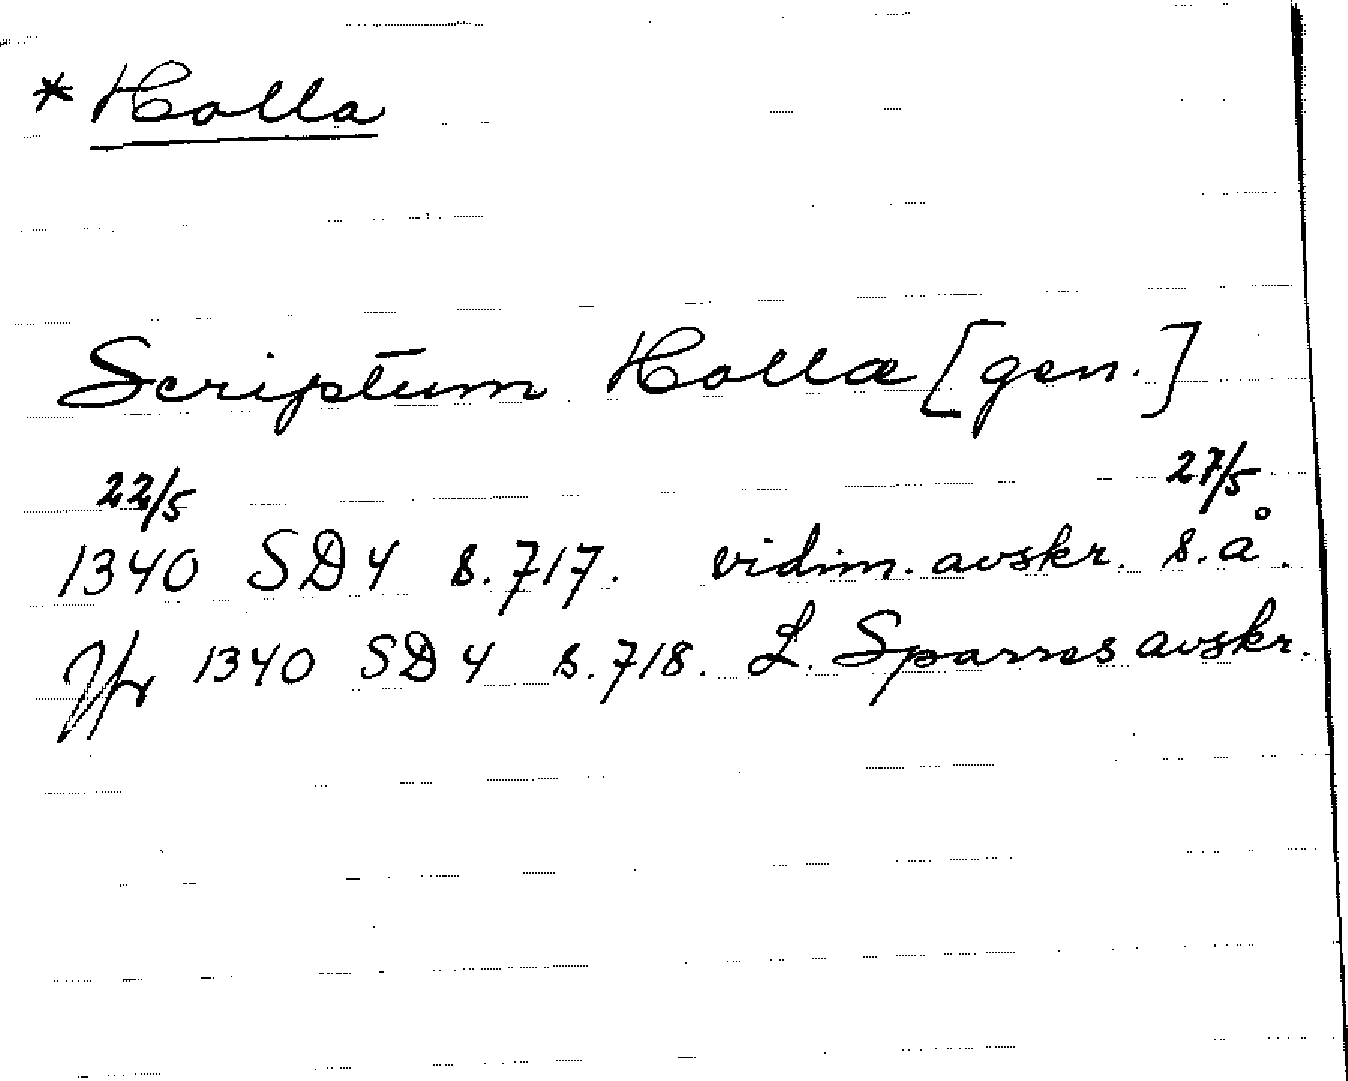 * Holla
Scriptum Hollæ [gen.]
22/5 27/5
1340 SD 4 s. 717. vidim. avskr. s. å.
Jfr 1340 SD 4 s. 718. L. Sparres avskr.